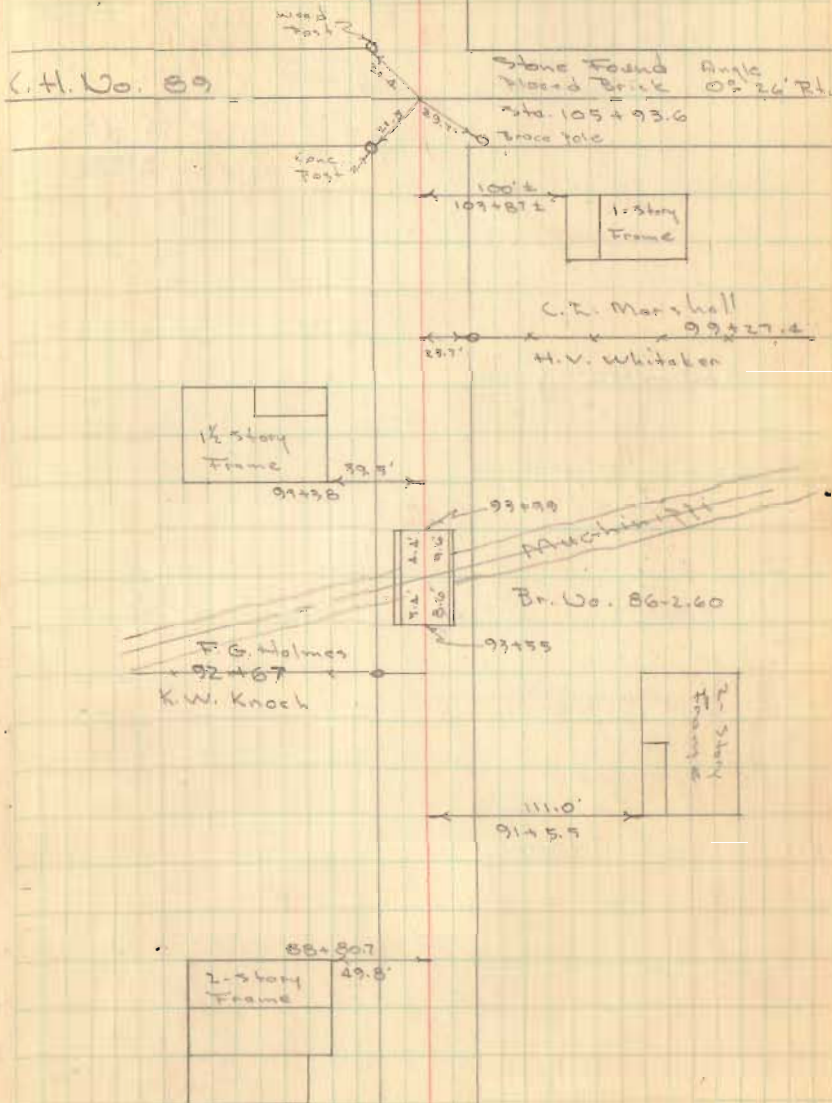 Wood
Post
C.H. No. 89
Stone Found
Placed Brick
Angle
0° 26' Rt.
Sta. 105 + 93.6
Brace Pole
Conc.
Post
100' ±
103+87 ±
1-Story
Frame
C.E. Marshall
99+27.4
H.V. Whitaker
1½ Story
Frame
39.5'
93+99
Br. No. 86-2.60
93+55
F.G. Holmes
92+67
K.W. Knoch
2-Story
Frame
111.0'
91+5.5
88+80.7
49.8'
2-Story
Frame